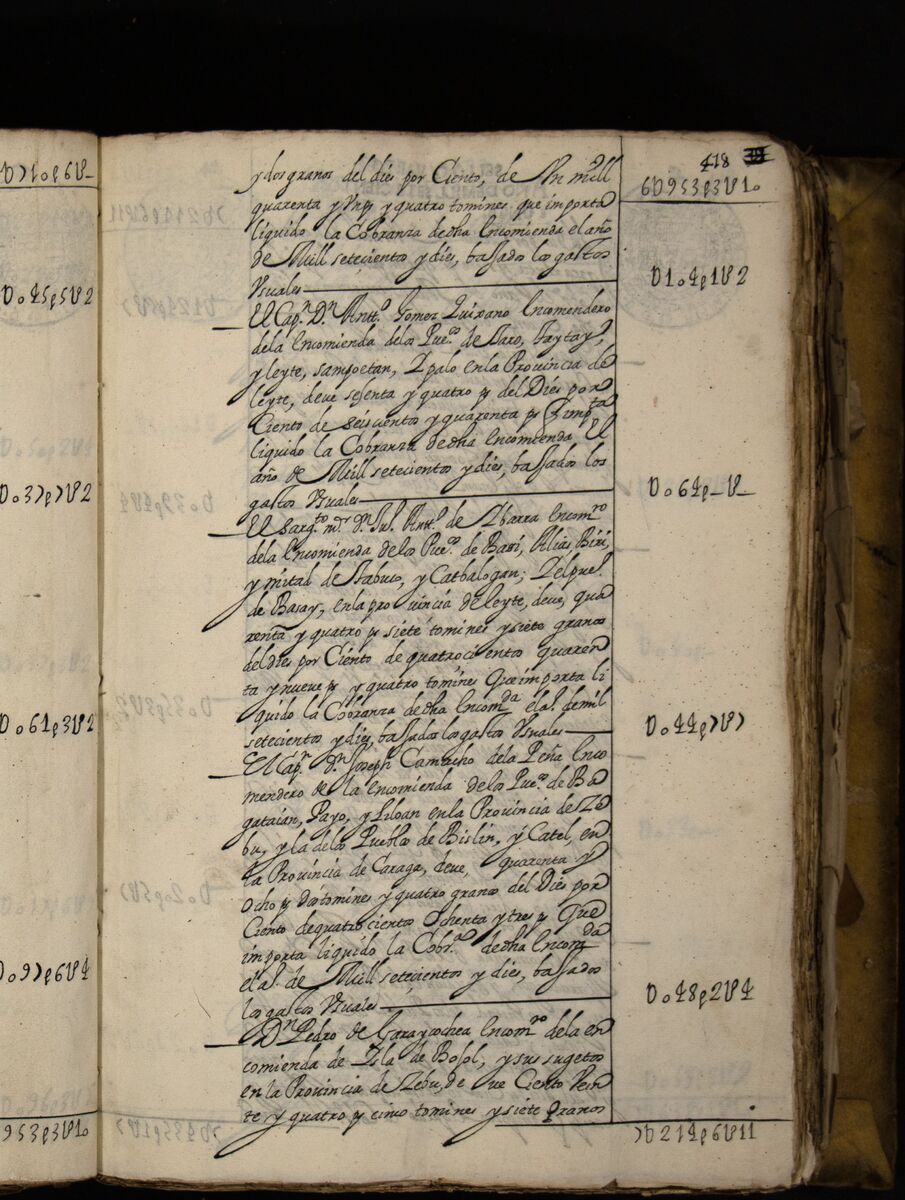 418
6U953p3U10
y dos granos del dies por Ciento, de Un mill
quarenta y Un ps y quatro tomines que importa
liquido la Cobranza de dha Encomienda el año
de Mill setecientos y dies, bajados los gastos
Usuales
U104p1U2
El Cap.n D.n Antt.o Gomez Quixano Encomendero
dela Encomienda delos Pue.os de Naro,
y leyte, sampoetan, Y palo en la Provincia de
leyte, deve sesenta y quatro ps del Dies por
Ciento de seiscientos y quarenta ps q imp.ta
liquido la Cobranza de dha Encomienda El
año de Mill setecientos y dies, bajados los
gastos Usuales
U064p-U-
El Sarg.to m.r d.n Ju.o Antt.o de Ybarra Encom.ro
dela Encomienda de los Pue.os de Bari, Alias Biri,
y mitad de Ybabao, y Catbalogan; Y el pue.o
de Basay, en la provincia de leyte, deve, qua
renta y quatro ps siete tomines y siete granos
del dies por Ciento de quatrocientos quaren
ta y nueve ps y quatro tomines Que importa li
quido la Cobranza de dha Encom.da el a.o de mil
setecientos y dies, bajados los gastos Usuales
U044p7U7
El Cap.n D.n Joseph Camacho dela Peña Enco
mendero de la Encomienda de los Pue.os de Ba
gataian, Payo, y Liloan en la Provincia de Ze
bu, y la delos Pueblos de Bislin, y Catel, en
la Provincia de Caraga, deve, quarenta y
Ocho ps dos tomines y quatro granos del Dies por
Ciento de quatrocientos Ochenta y tres ps Que
importa liquido la Cobr.a de dha Encom.da
el a.o de Mill setecientos y dies, bajados
los gastos Usuales
U048p2U4
D.n Pedro de Garaycochea Encom.ro dela en
comienda de Ysla de Bojol, y sus sugetos
en la Provincia de Zebu, de ve Ciento Vein
te y quatro ps cinco tomines y siete granos
7U214p6U11
U710p6U-
U045p5U2
U037p7U2
U061p3U2
U097p6U4
953p3U10